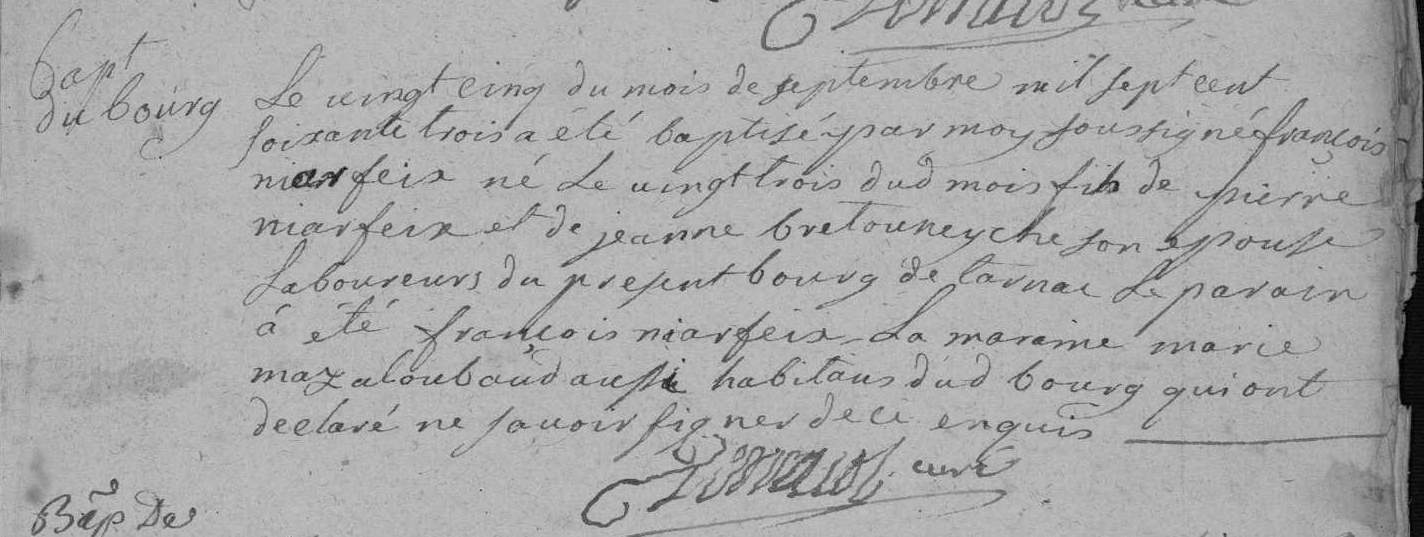 curé
Bapt
du bourg
Le vingt cinq du mois de septembre mil sept cent
soixante trois a été baptisé par moy soussigné françois
niarfeix né le vingt trois dud mois fils de pierre
niarfeix et de jeanne bretouneyche son epouse
Laboureurs du present bourg de tarnac Le parain
á été françois niarfeix La maraine marie
mazaloubaud aussi habitans dud bourg qui ont
declaré ne savoir signer de ce enquis
curé
Bap De